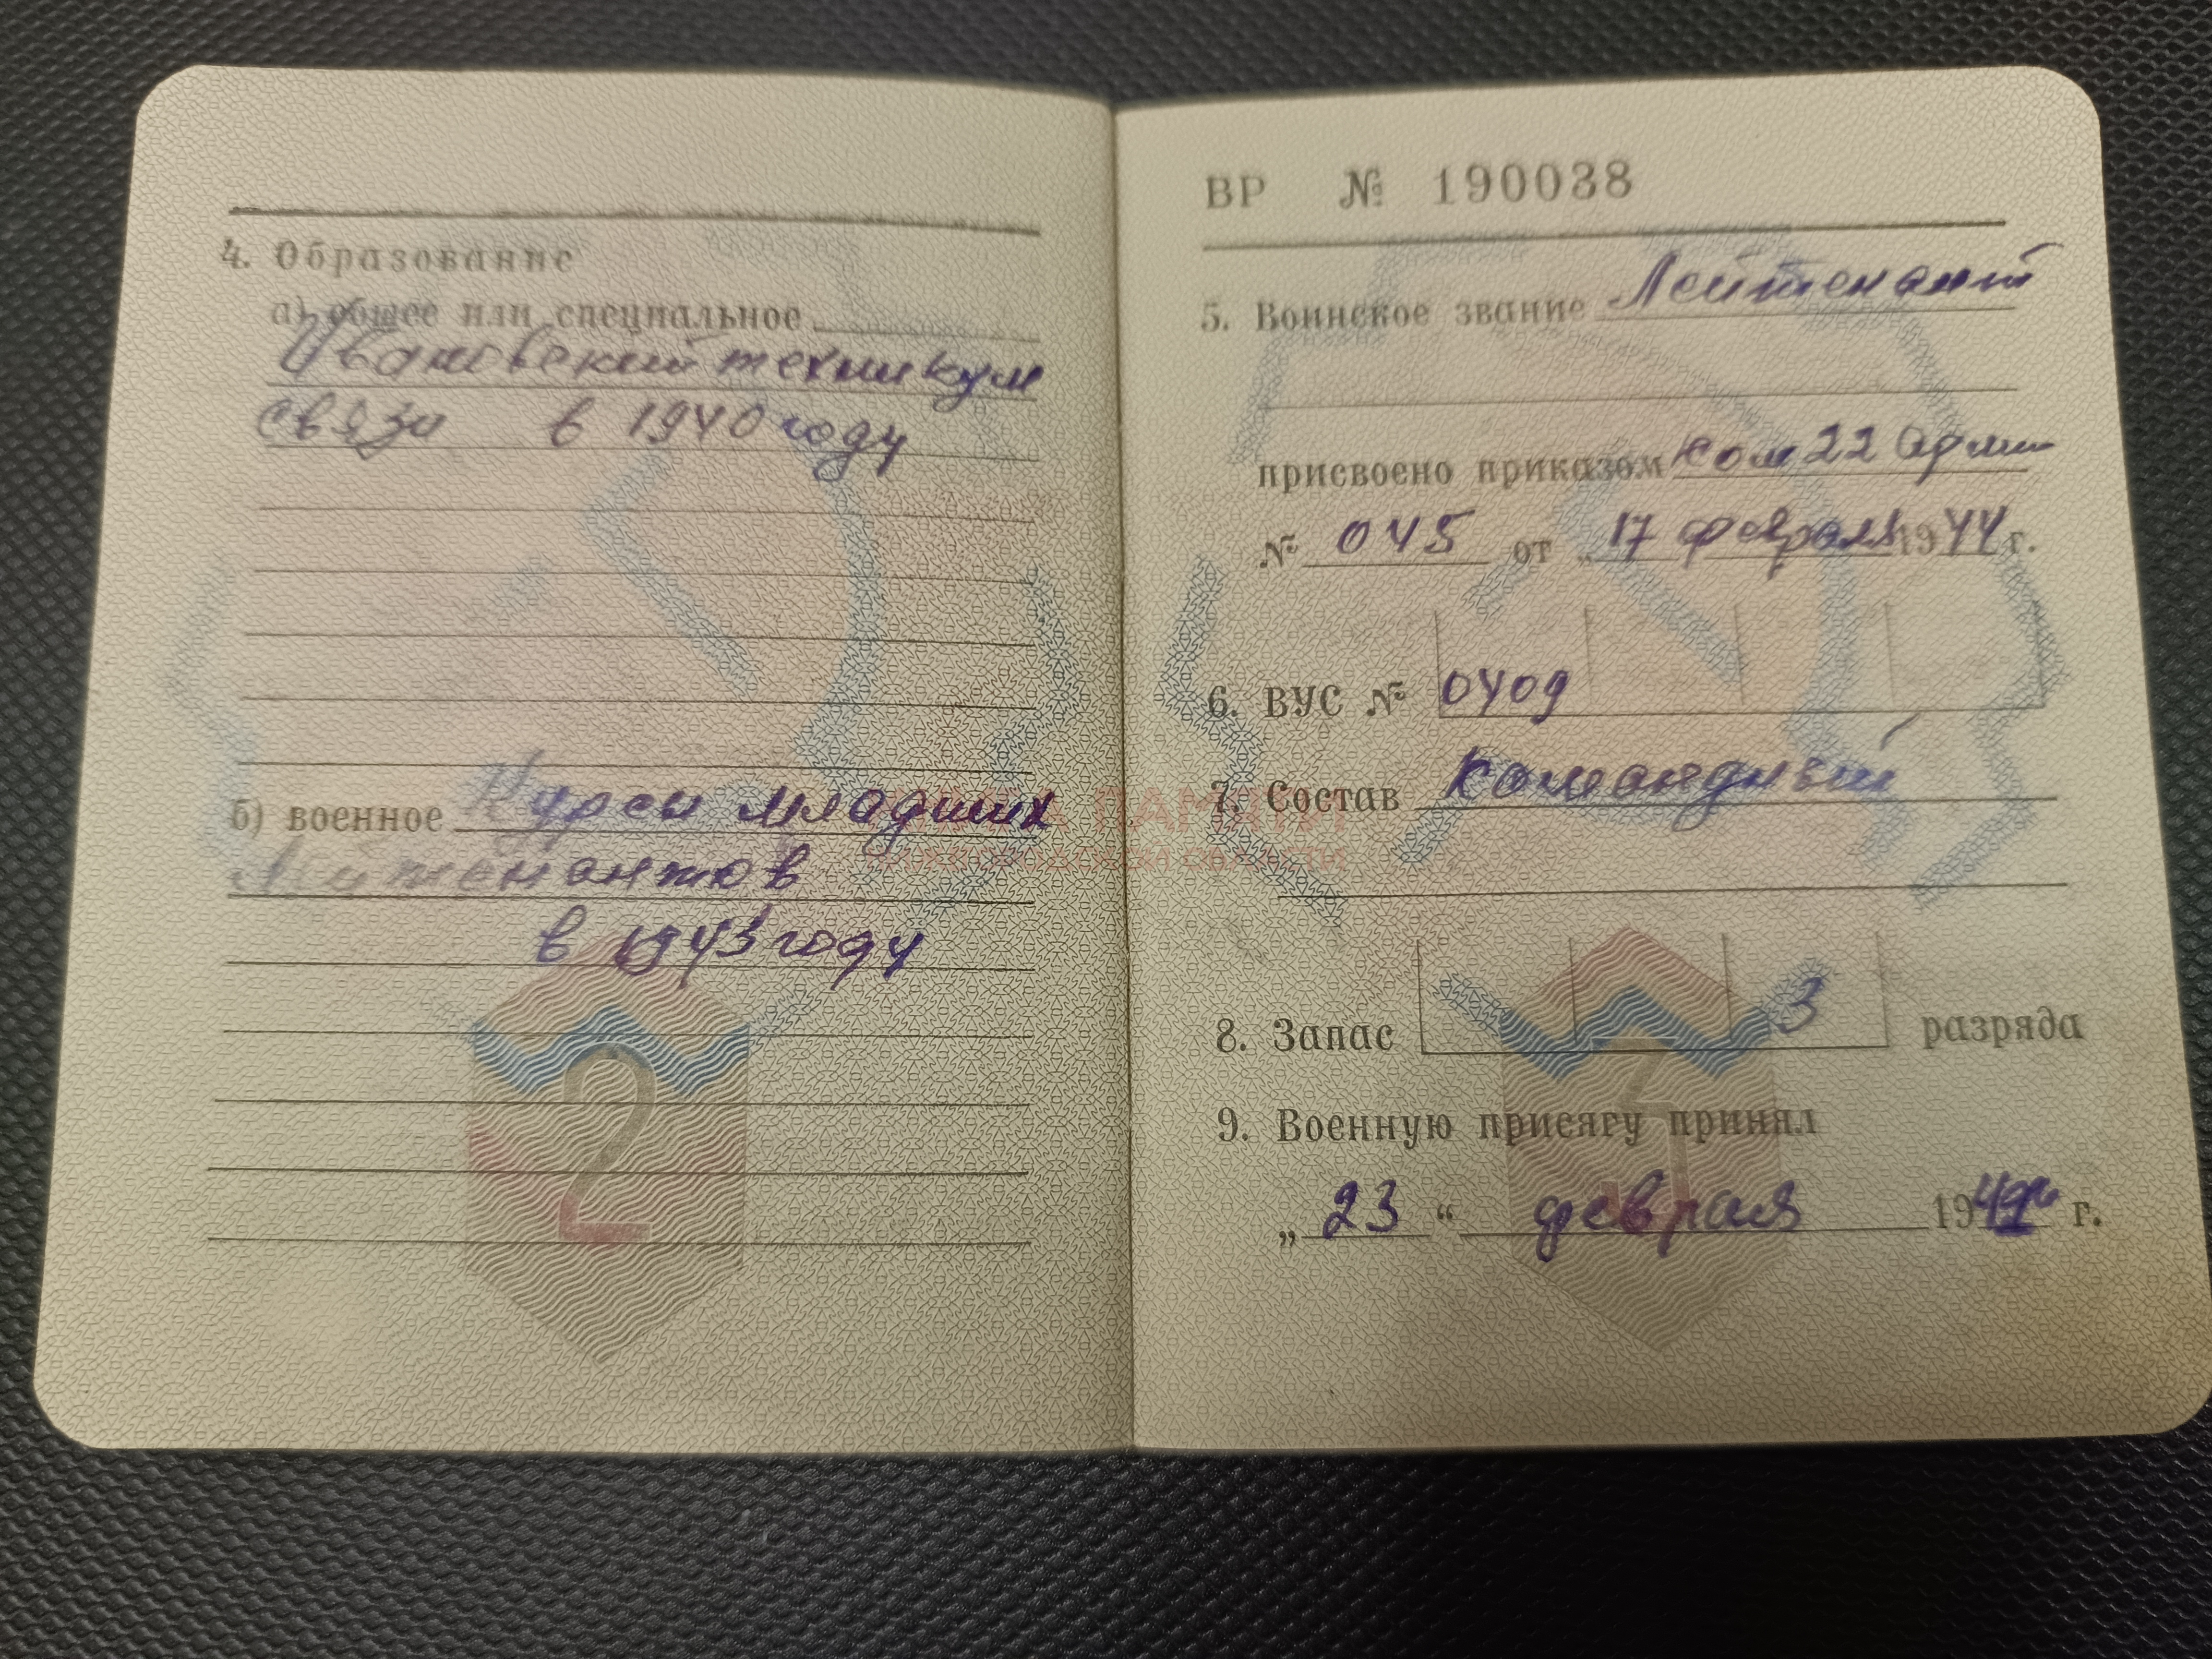 4. Образование
а) общее или специальное
Ивановский техникум
связи в 1940 году
б) военное Курсы младших
лейтенантов
в 1943 году
2
ВР № 190038
5. Воинское звание Лейтенант
присвоено приказом Ком 22 Арми
№ 045 от 17 февраля 1944 г.
6. ВУС № 0409
7. Состав Командный
8. Запас 3 разряда
9. Военную присягу принял
„ 23 “ февраля 19 г.
3
ПАМЯТИ
ОБЛАСТИ